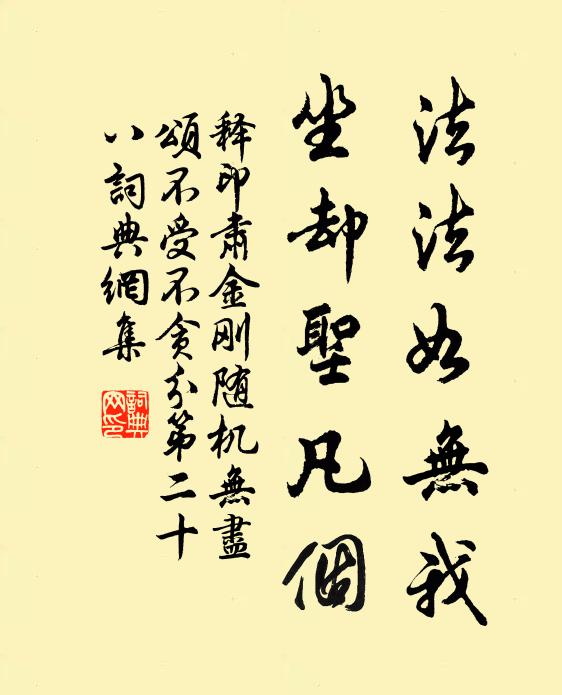 法法如無我
坐却聖凡個
释印肃金刚随机無盡
頌不受不贪分第二十
八詞典網集
詞典
网印